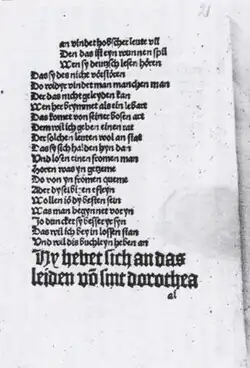 an vindet hobscher leute vil
Den das ist eyn wunnen spil
Wen sy deutsch lesen hören
Das sy des nicht vorstören
Do widyr vindet man manchen man
Der das nicht geleyden kan
Wen her brymmet als ein lebart
Das komet von seiner bosen art
Dem wil ich geben einen rat
Der solchen leuten wol an stat
Das sy sich halden hyn dan
Und losen einen fromen man
Hören was ym getzeme
Do von ym fromen queme
Aber dy selbigen esleyn
Wollen io dy besten sein
Was man begynnet vor yn
Jo duncket sy besser yr syn
Das wil ich bey in lossen stan
Und wil dis buchleyn heben an
Ny hebet sich an das
leiden vō sint dorothea
al